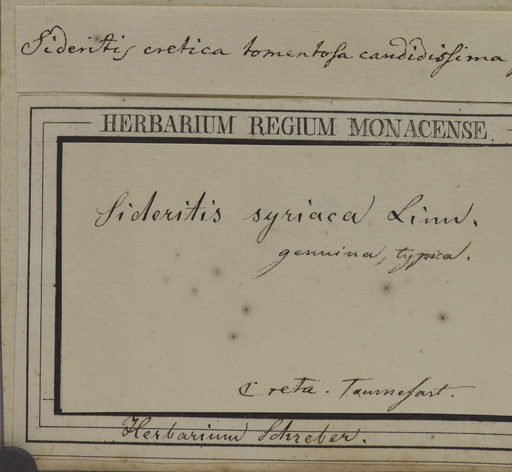 Sideritis cretica tomentosa candidissima
HERBARIUM REGIUM MONACENSE
Sideritis syriaca Linn.
genuina, typica.
Creta. Tournefort.
Herbarium Schreber.